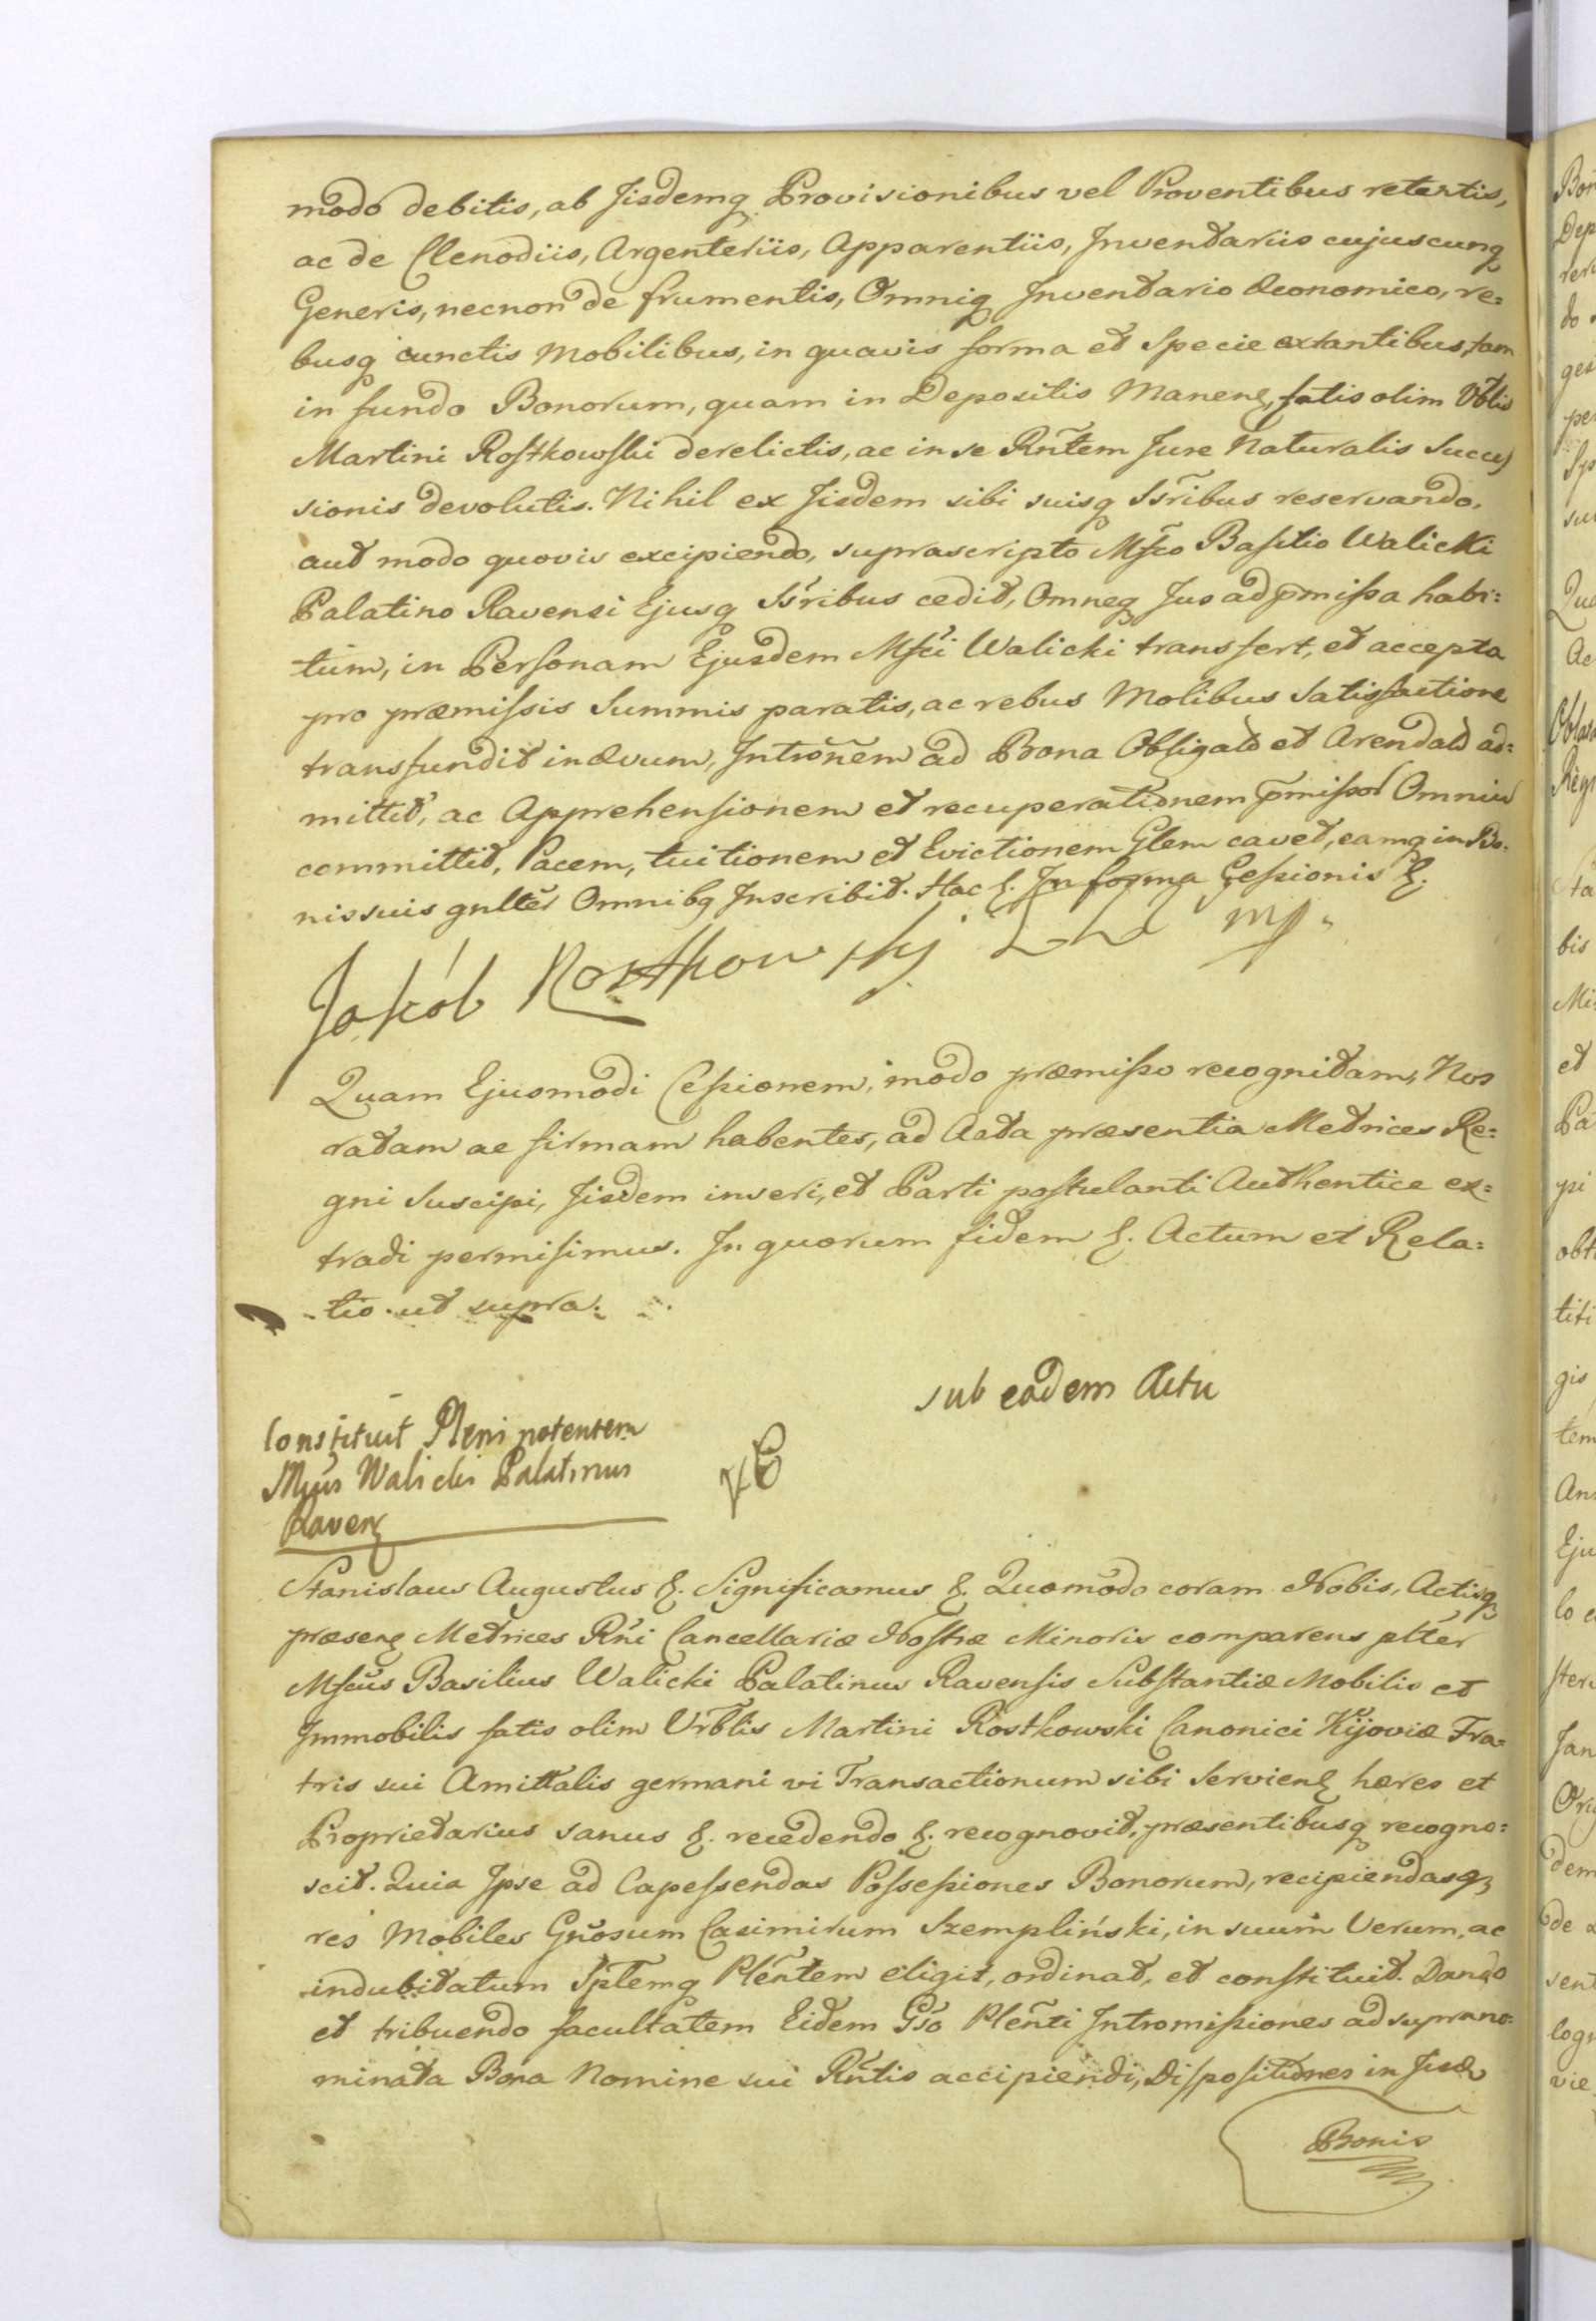 modo debitis, ab Jisdemq Provisionibus vel Proventibus retentis,
ac de Clenodiis, Argenteriis, Apparentiis, Inventariis cujuscunq
Generis, necnon de frumentis, Omniq Inventario Oeconomico, re=
busq cunctis Mobilibus, in quavis forma et Specie extantibus, tam
in fundo Bonorum, quam in Depositis Manenę, fatis olim Vrblis
Martini Rostkowski derelictis, ac in se Rñtem Jure Naturalis Succes
sionis devolutis. Nihil ex Jisdem sibi suisq Ss̃ribus reservando,
aut modo quovis excipiendo, suprascripto Mfco Basilio Walicki
Palatino Ravensi Ejusq Ss̃ribus cedit, Omneq Jus ad pmissa habi=
tum, in Personam Ejusdem Mfci Walicki transfert, et accepta
pro præmissis Summis paratis, ac rebus Molibus Satisfactione
transfundit inævum, Introñem ad Bona Obligat et Arendat ad=
mittit, ac Apprehensionem et recuperationem p̃missor Omniu
committit, Pacem, tuitionem et Evictionem Glem cavet, eamq in Bo-
nis suis gnlter Omnibq Inscribit. Hac &. In forma Cessionis &.
Jakób Rostkowskij mp
Quam Ejusmodi Cessionem, modo præmisso recognitam, Nos
ratam ac firmam habentes, ad Acta præsentia Metrices Re=
gni Suscipi, Jisdem inseri, et Parti postulanti Authentice ex=
tradi permisimus. In quorum fidem &. Actum et Rela=
tio ut supra.
sub eodem Actu
Constituit Plenipotentem
Mfcus Walicki Palatinus
Ravenę
Stanislaus Augustus &. Significamus &. Quomodo coram Nobis, Actisq
præsenę Metrices Rñi Cancellariæ Nostræ Minoris comparens plter
Mfcus Basilius Walicki Palatinus Ravensis Substantiæ Mobilis et
Immobilis fatis olim Vrblis Martini Rostkowski Canonici Kijoviæ Fra=
tris sui Amittalis germani vi Transactionum sibi Servienę hæres et
Proprietarius sanus &. recedendo &. recognovit, præsentibusq recogno=
scit. Quia Ipse ad Capessendas Possessiones Bonorum, recipiendasq
res Mobiles Gñosum Casimirum Szempliński, in suum Verum, ac
indubitatum Spltemq Pleñtem eligit, ordinat, et constituit. Dando
et tribuendo facultatem Eidem Gso Pleñti Intromissiones ad suprano=
minata Bona Nomine sui Rñtis accipiendi, Dispositiones in Jisde
Bonis